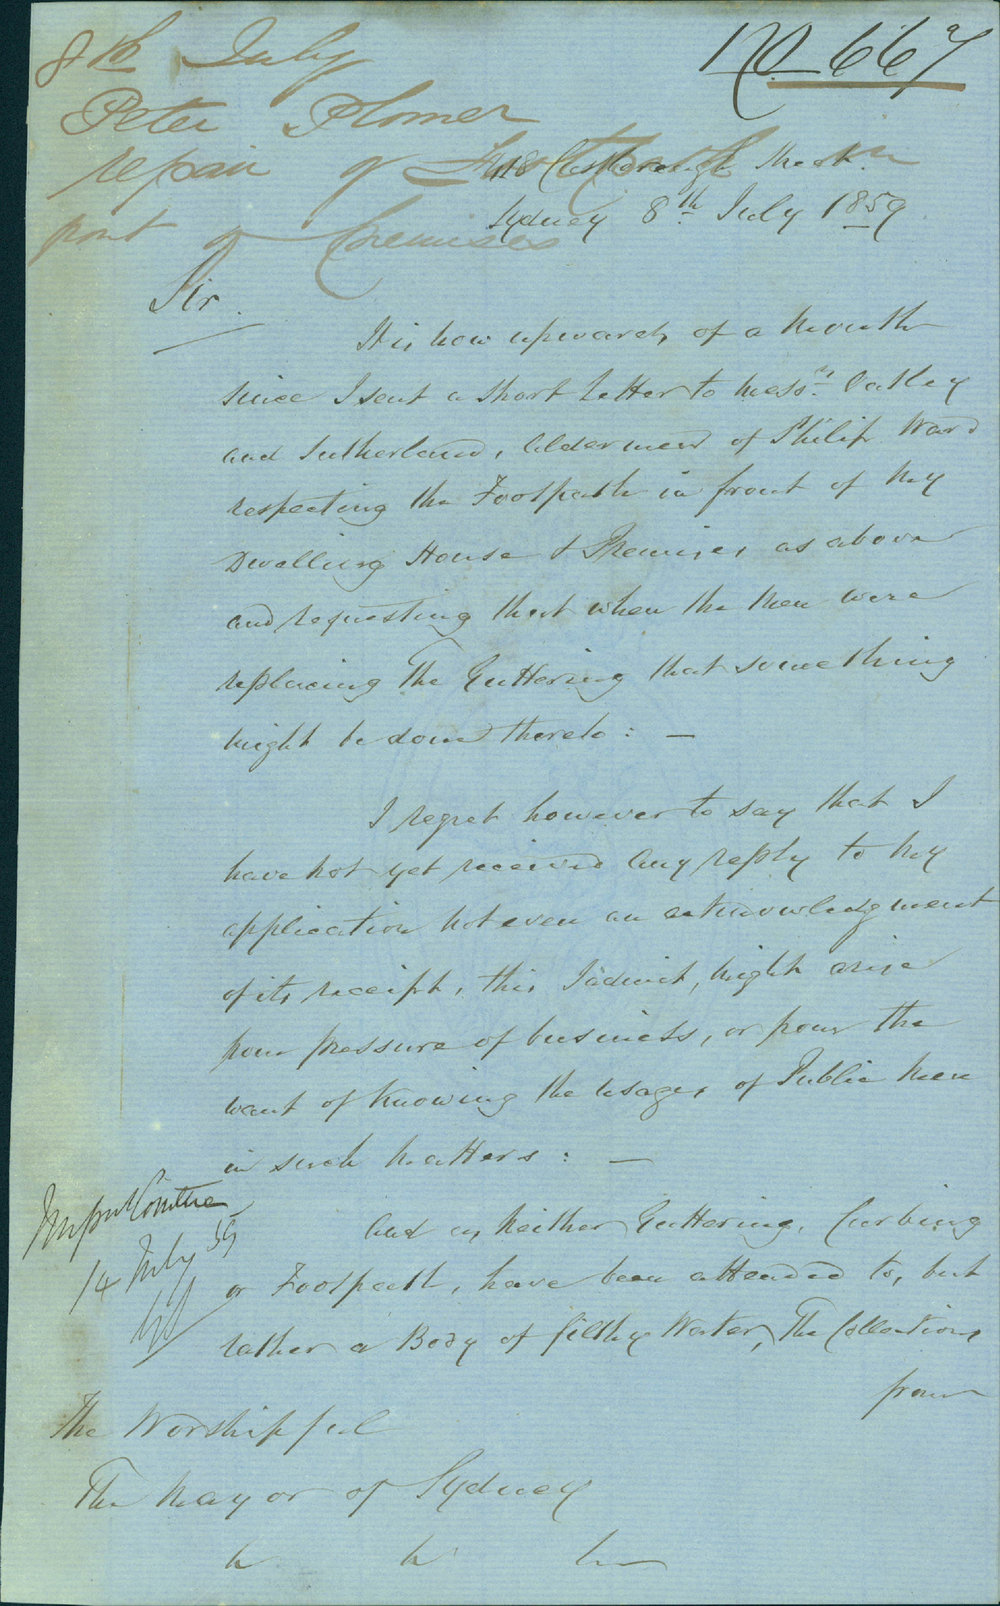 No 667
8th July
Peter Plomer
repair of Footpath in
front of Premises
418 Castlereagh Street
Sydney 8th July 1859
Sir
It is now upwards of a Month
since I sent a short Letter to Messrs. Oatley
and Sutherland, Aldermen of Philip Ward
respecting the Footpath in front of My
Dwelling House & Premises as above
and requesting that when the Men were
replacing The Guttering that something
might be done thereto : —
I regret however to say that I
have not yet received any reply to my
application not even an acknowledgment
of its receipt, this I admit, might arise
from pressure of business, or from the
want of Knowing the usages of Public Men
in such Matters : —
And as neither Guttering, Curbing
or Footpath, have been attended to, but
rather a Body of filthy Water, The Collections
from
Imput Comttee
14 July 59
The Worshipful
The Mayor of Sydney